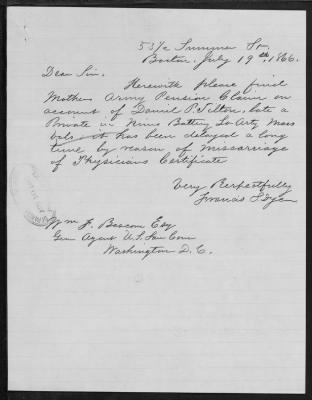 53½ Summer St.
Boston, July 19th, 1866.
Dear Sir,
Herewith please find
Mothers Army Pension Claim on
account of Daniel P. Tilton, late a
Private in Nims Battery Lt Arty Mass
Vols - it has been delayed a long
time by reason of miscarriage
of Physicians Certificate
Very Respectfully
Francis S. Dyer
Wm F. Bascom Esq
Gen Agent U.S. San Com
Washington D.C.